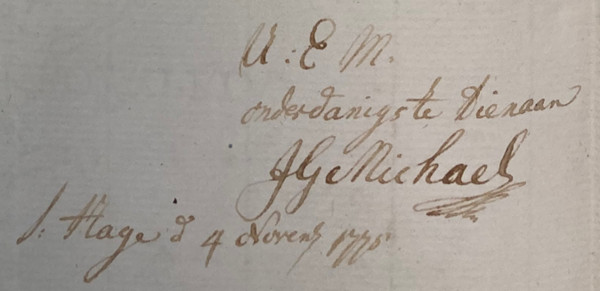 U: E M.
onderdanigste Dienaar
JG Michael
s: Hage d 4 Novemb 1775